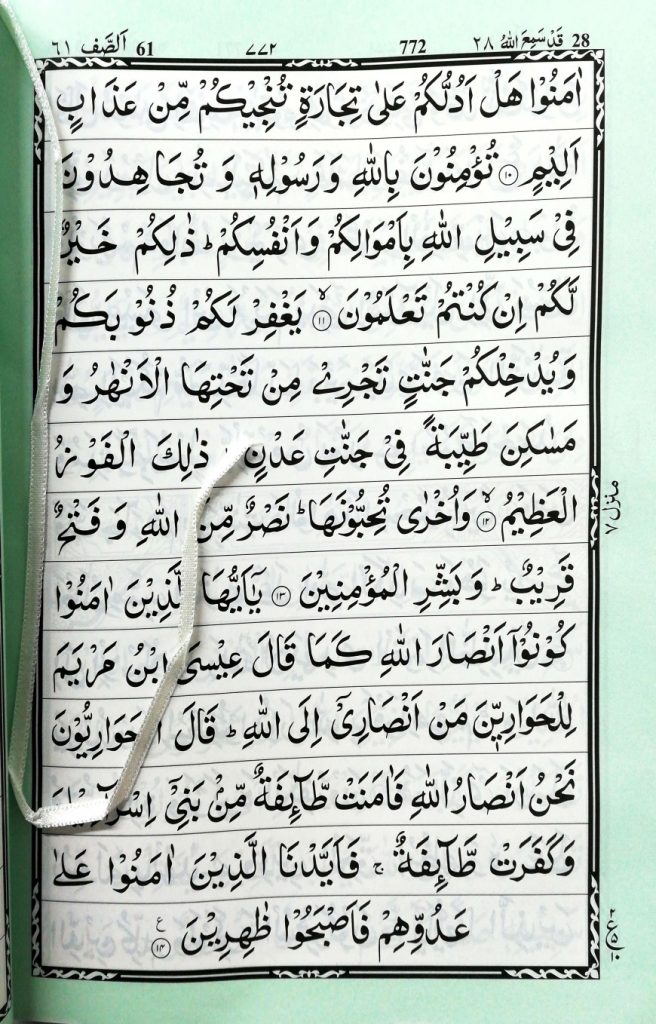 28 قَدْ سَمِعَ اللّٰهُ ٢٨ 772 ٧٧٢ 61 اَلصَّف ٦١
اٰمَنُوْا هَلْ اَدُلُّكُمْ عَلٰى تِجَارَةٍ تُنْجِيْكُمْ مِّنْ عَذَابٍ
اَلِيْمٍ ١٠ تُؤْمِنُوْنَ بِاللّٰهِ وَ رَسُوْلِهٖ وَ تُجَاهِدُوْنَ
فِيْ سَبِيْلِ اللّٰهِ بِاَمْوَالِكُمْ وَ اَنْفُسِكُمْ ؕ ذٰلِكُمْ خَيْرٌ
لَّكُمْ اِنْ كُنْتُمْ تَعْلَمُوْنَ ۙ ١١ يَغْفِرْ لَكُمْ ذُنُوْبَكُمْ
وَ يُدْخِلْكُمْ جَنّٰتٍ تَجْرِيْ مِنْ تَحْتِهَا الْاَنْهٰرُ وَ
مَسٰكِنَ طَيِّبَةً فِيْ جَنّٰتِ عَدْنٍ ذٰلِكَ الْفَوْزُ
الْعَظِيْمُ ۙ ١٢ وَ اُخْرٰى تُحِبُّوْنَهَا ؕ نَصْرٌ مِّنَ اللّٰهِ وَ فَتْحٌ
قَرِيْبٌ ؕ وَ بَشِّرِ الْمُؤْمِنِيْنَ ١٣ يٰۤاَيُّهَا الَّذِيْنَ اٰمَنُوْا
كُوْنُوْۤا اَنْصَارَ اللّٰهِ كَمَا قَالَ عِيْسَى ابْنُ مَرْيَمَ
لِلْحَوَارِيّٖنَ مَنْ اَنْصَارِيْۤ اِلَى اللّٰهِ ؕ قَالَ الْحَوَارِيُّوْنَ
نَحْنُ اَنْصَارُ اللّٰهِ فَاٰمَنَتْ طَّآئِفَةٌ مِّنْۢ بَنِيْۤ اِسْرَآءِيْلَ
وَ كَفَرَتْ طَّآئِفَةٌ ۚ فَاَيَّدْنَا الَّذِيْنَ اٰمَنُوْا عَلٰى
عَدُوِّهِمْ فَاَصْبَحُوْا ظٰهِرِيْنَ ١٤ ع
منزل ٧